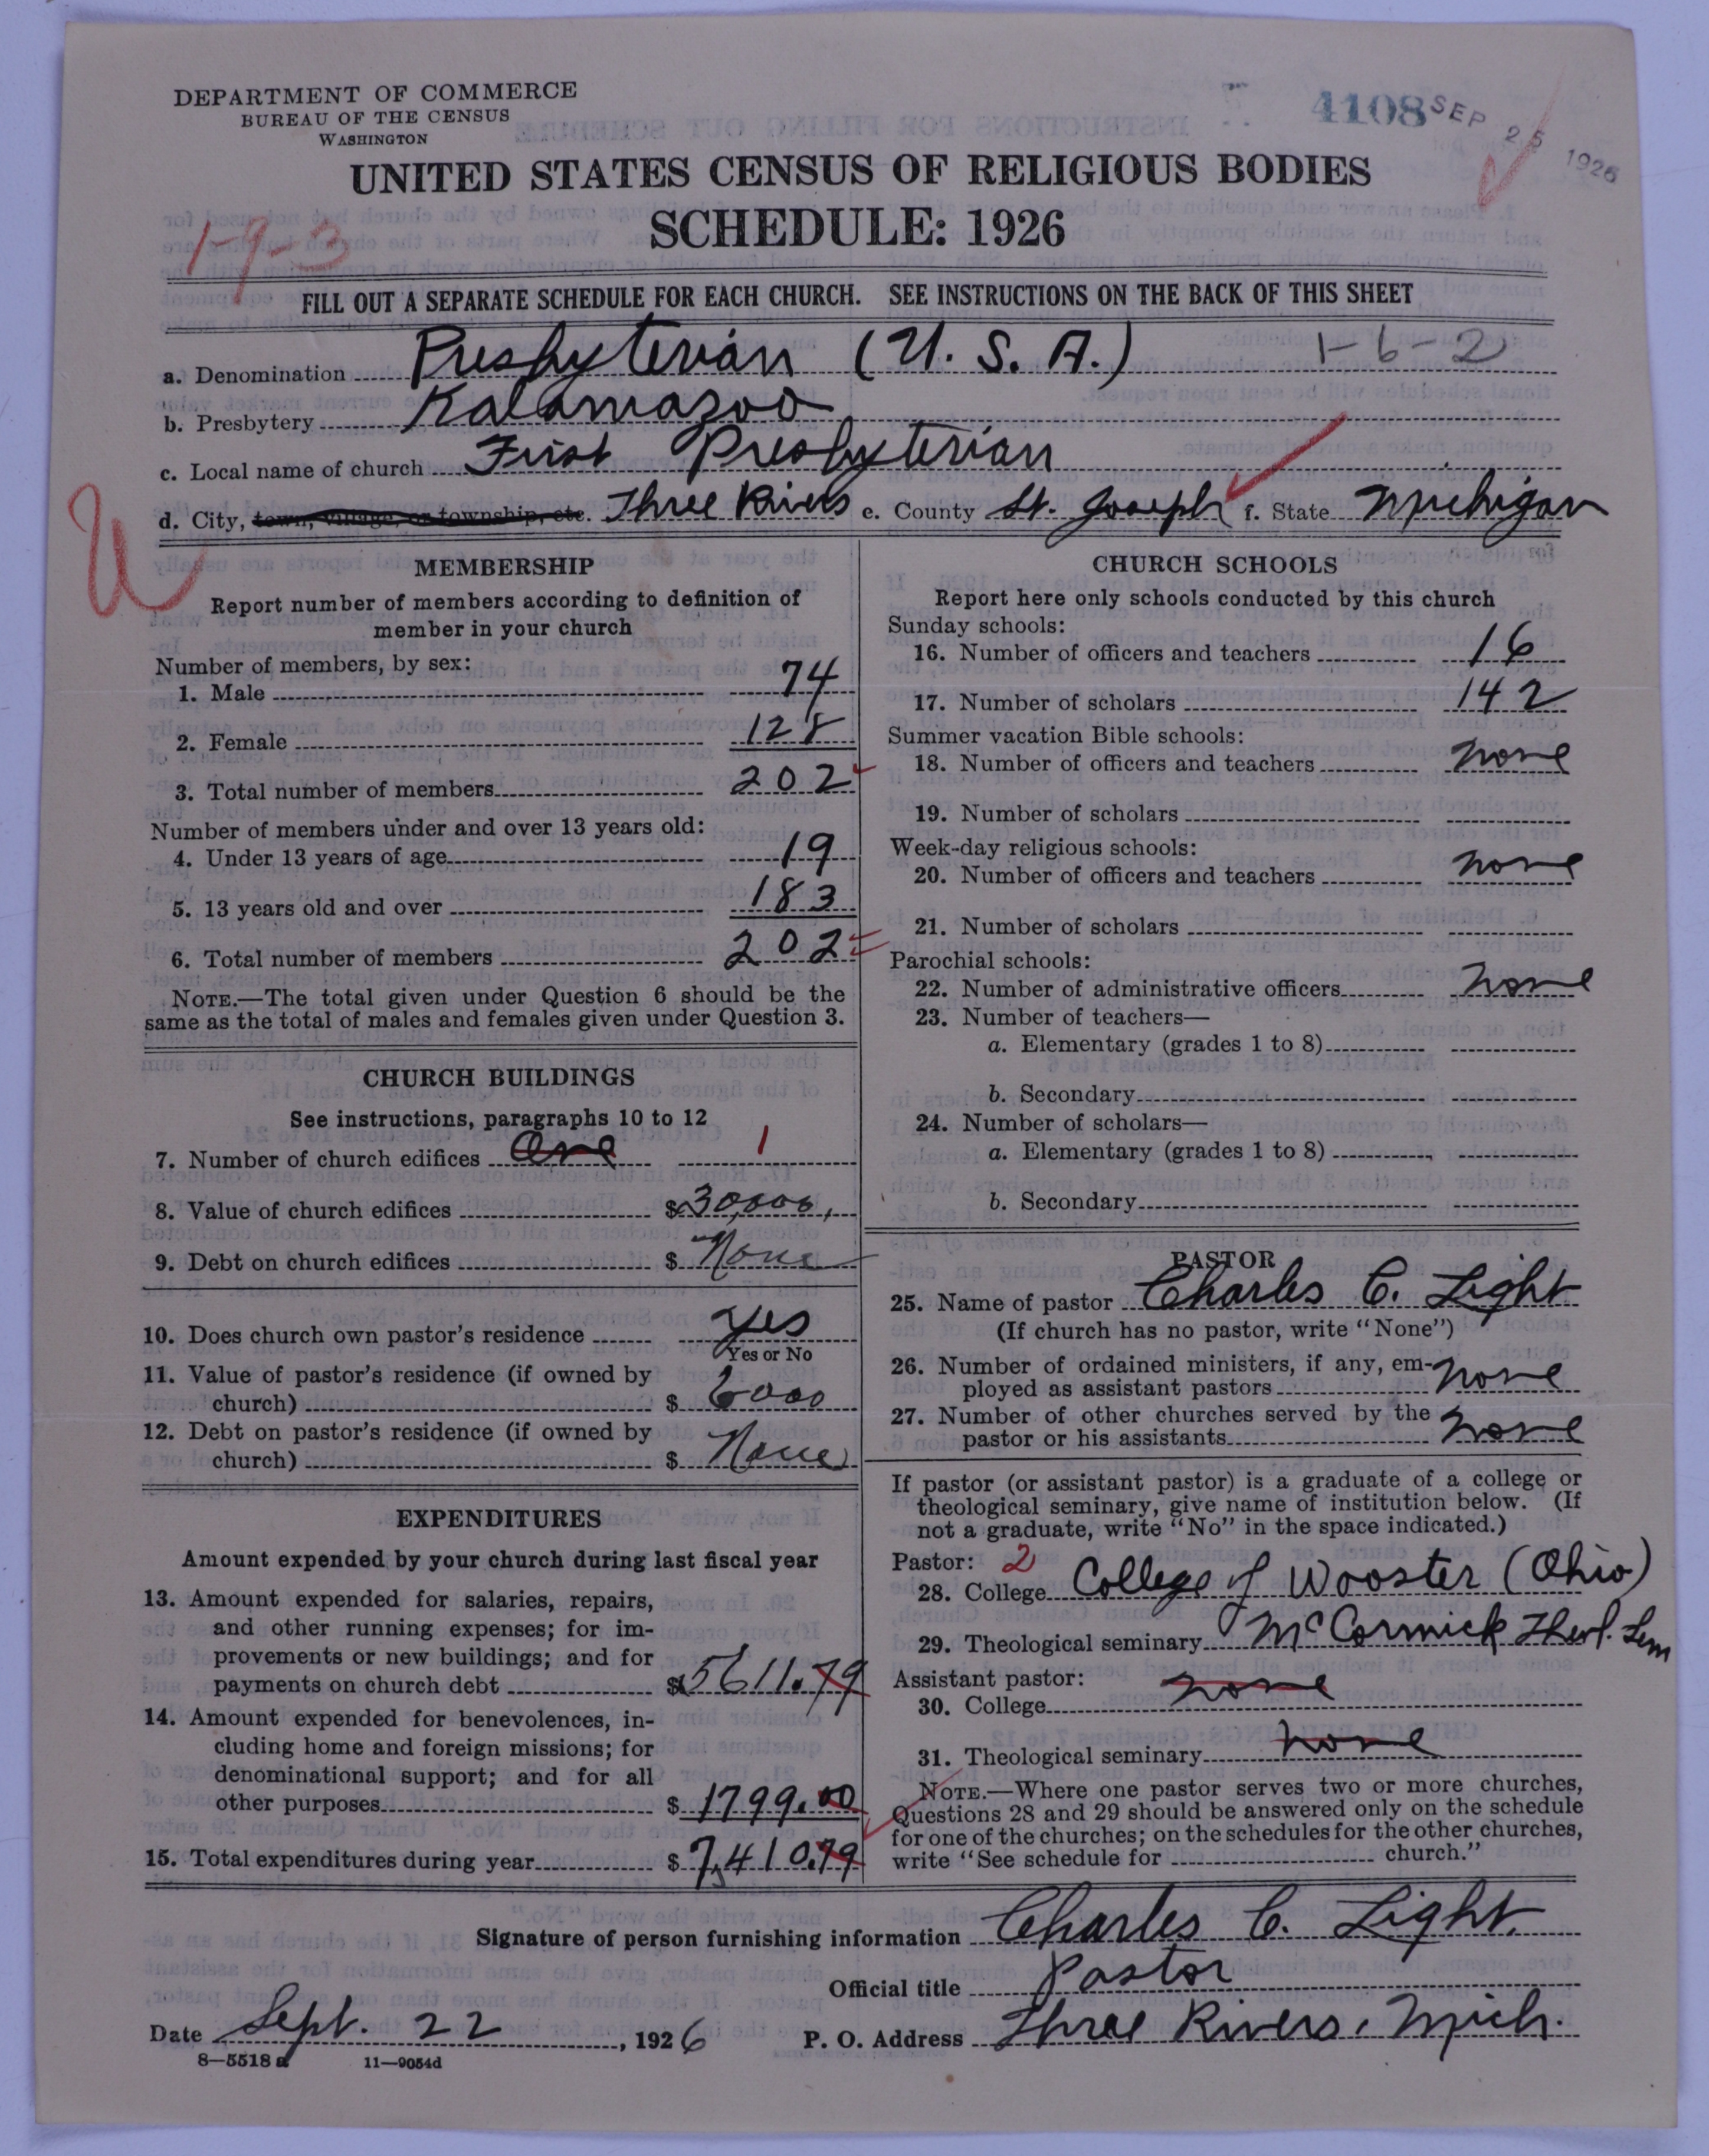 DEPARTMENT OF COMMERCE
BUREAU OF THE CENSUS
WASHINGTON
4108
SEP 25 1926
UNITED STATES CENSUS OF RELIGIOUS BODIES
SCHEDULE: 1926
19-3
FILL OUT A SEPARATE SCHEDULE FOR EACH CHURCH. SEE INSTRUCTIONS ON THE BACK OF THIS SHEET
a. Denomination Presbyterian (U. S. A.) 1-6-2
b. Presbytery Kalamazoo
c. Local name of church First Presbyterian
d. City, town, village, or township, etc. Three Rivers e. County St. Joseph f. State Michigan
U
MEMBERSHIP
Report number of members according to definition of
member in your church
Number of members, by sex:
1. Male 74
2. Female 128
3. Total number of members 202
Number of members under and over 13 years old:
4. Under 13 years of age 19
5. 13 years old and over 183
6. Total number of members 202
NOTE.—The total given under Question 6 should be the
same as the total of males and females given under Question 3.
CHURCH BUILDINGS
See instructions, paragraphs 10 to 12
7. Number of church edifices One 1
8. Value of church edifices $30,000,
9. Debt on church edifices $ None
10. Does church own pastor's residence Yes
Yes or No
11. Value of pastor's residence (if owned by
church) $ 6000
12. Debt on pastor's residence (if owned by
church) $ None
EXPENDITURES
Amount expended by your church during last fiscal year
13. Amount expended for salaries, repairs,
and other running expenses; for im-
provements or new buildings; and for
payments on church debt $5611.79
14. Amount expended for benevolences, in-
cluding home and foreign missions; for
denominational support; and for all
other purposes $ 1799.00
15. Total expenditures during year $ 7,410.79
CHURCH SCHOOLS
Report here only schools conducted by this church
Sunday schools:
16. Number of officers and teachers 16
17. Number of scholars 142
Summer vacation Bible schools:
18. Number of officers and teachers none
19. Number of scholars
Week-day religious schools:
20. Number of officers and teachers none
21. Number of scholars
Parochial schools:
22. Number of administrative officers none
23. Number of teachers—
a. Elementary (grades 1 to 8)
b. Secondary
24. Number of scholars—
a. Elementary (grades 1 to 8)
b. Secondary
PASTOR
25. Name of pastor Charles C. Light
(If church has no pastor, write "None")
26. Number of ordained ministers, if any, em-
ployed as assistant pastors none
27. Number of other churches served by the
pastor or his assistants none
If pastor (or assistant pastor) is a graduate of a college or
theological seminary, give name of institution below. (If
not a graduate, write "No" in the space indicated.)
Pastor: 2
28. College College of Wooster (Ohio)
29. Theological seminary McCormick Theol. Sem
Assistant pastor:
30. College none
31. Theological seminary none
NOTE.—Where one pastor serves two or more churches,
Questions 28 and 29 should be answered only on the schedule
for one of the churches; on the schedules for the other churches,
write "See schedule for church."
Signature of person furnishing information Charles C. Light.
Official title Pastor
Date Sept. 22, 1926 P. O. Address Three Rivers, Mich.
8—5518 a 11—9054d